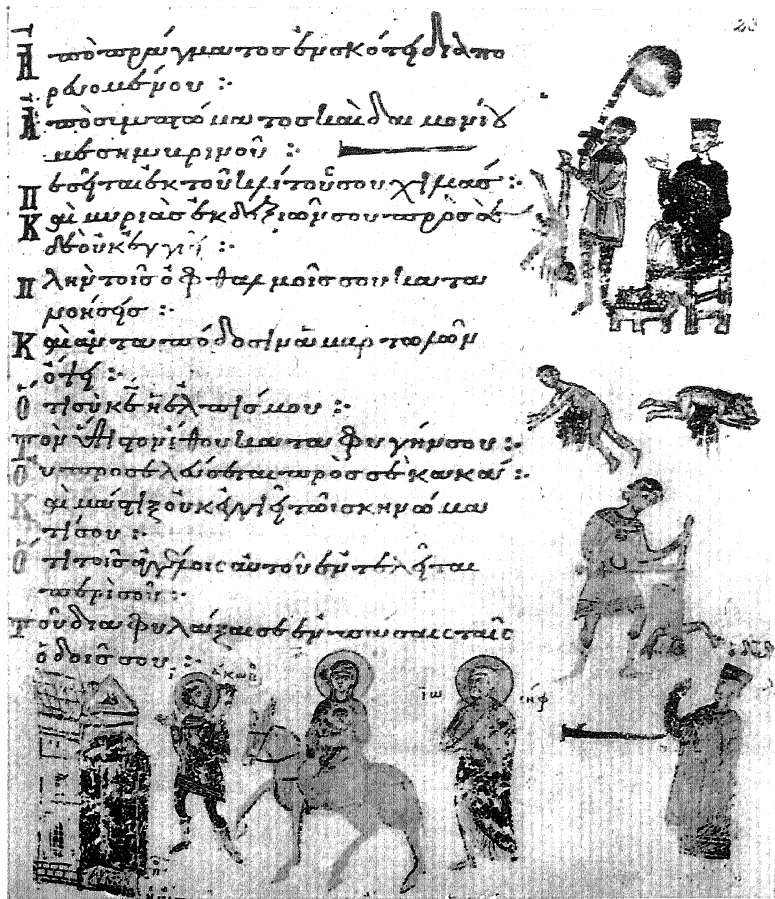 23
Ἀπὸ πράγματος ἐν σκότει δϊαπο
ρευομένου :·
Ἀπὸ συμπτώματος καὶ δαιμονίου
μεσημβρινοῦ :·
Πεσεῖται ἐκ τοῦ κλίτους σου χιλιάς :·
Καὶ μυριὰς ἐκ δεξιῶν σου πρὸς σὲ
δὲ οὐκ ἐγγιεῖ :·
Πλὴν τοῖς ὀφθαλμοῖς σου κατα
νοήσεις :·
Καὶ ἀνταπόδοσιν ἁμαρτωλῶν
ὄψει :·
Ὅτι σὺ κε ἡ ἐλπίς μου :·
Τὸν ὕψιστον ἔθου καταφυγήν σου :·
Οὐ προσελεύσεται πρὸς σὲ κακά :·
Καὶ μάστιξ οὐκ ἐγγιεῖ τῶ σκηνώμα
τί σου :·
Ὅτι τοῖς ἀγγέλοις αὐτοῦ ἐντελεῖται
περὶ σοῦ :·
Τοῦ διαφυλάξαι σε ἐν πάσαις ταῖς
ὁδοῖς σου :·
ἰάκωβ
ἰωσήφ